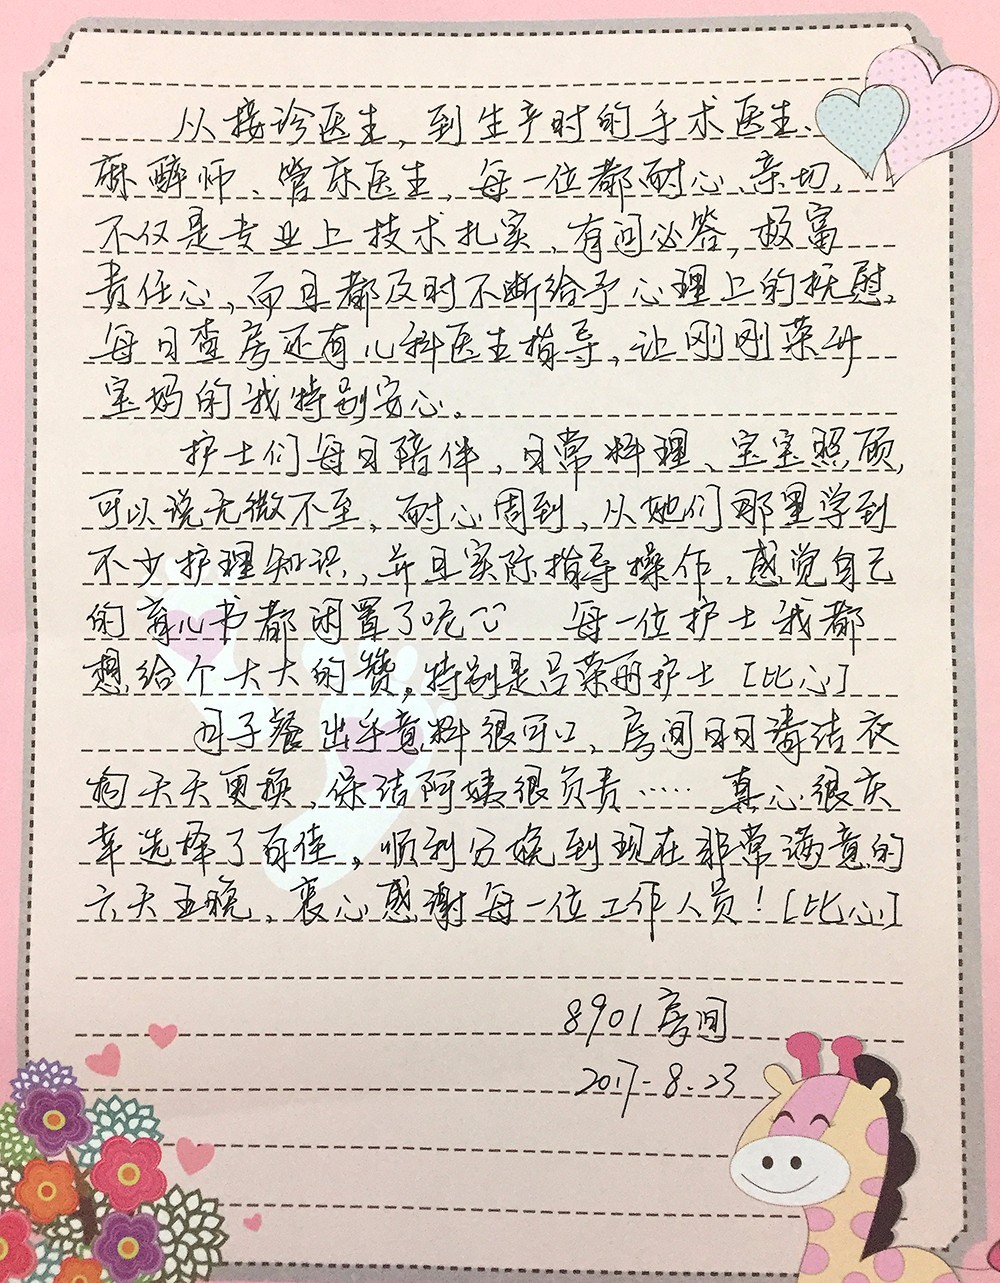 从接诊医生,到生产时的手术医生、
麻醉师、管床医生,每一位都耐心、亲切,
不仅是专业上技术扎实,有问必答,极富
责任心,而且都及时不断给予心理上的抚慰。
每日查房还有儿科医生指导,让刚刚荣升
宝妈的我特别安心。
护士们每日陪伴,日常料理、宝宝照顾,
可以说无微不至,耐心周到,从她们那里学到
不少护理知识,并且实际指导操作,感觉自己
的育儿书都闲置了呢 每一位护士我都
想给个大大的赞,特别是吕荣丽护士 [比心]
月子餐出乎意料很可口,房间日日清洁衣
物天天更换,保洁阿姨很负责…… 真心很庆
幸选择了百佳,顺利分娩到现在非常满意的
六天五晚,衷心感谢每一位工作人员![比心]
8901房间
2017-8.23